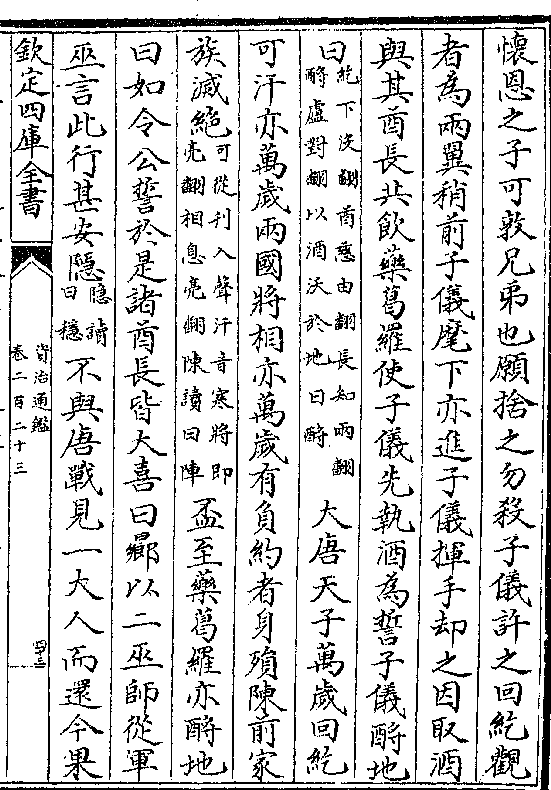 懷恩之子可敦兄弟也願捨之勿殺子儀許之回紇觀
者為兩翼稍前子儀麾下亦進子儀揮手却之因取酒
與其酋長共飲藥葛羅使子儀先執酒為誓子儀酹地
曰
紇下没翻酋慈由翻長知兩翻
酹盧對翻以酒沃於地曰酹
大唐天子萬歲回紇
可汗亦萬歲兩國將相亦萬歲有負約者身殞陳前家
族滅絶
可從刋入聲汗音寒將即
亮翻相息亮翻陳讀曰陣
盃至藥葛羅亦酹地
曰如令公誓於是諸酋長皆大喜曰曏以二巫師從軍
巫言此行甚安隠
隠讀
曰穩
不與唐戰見一大人而還今果
欽定四庫全書
資治通鑑
卷二百二十三
四十三